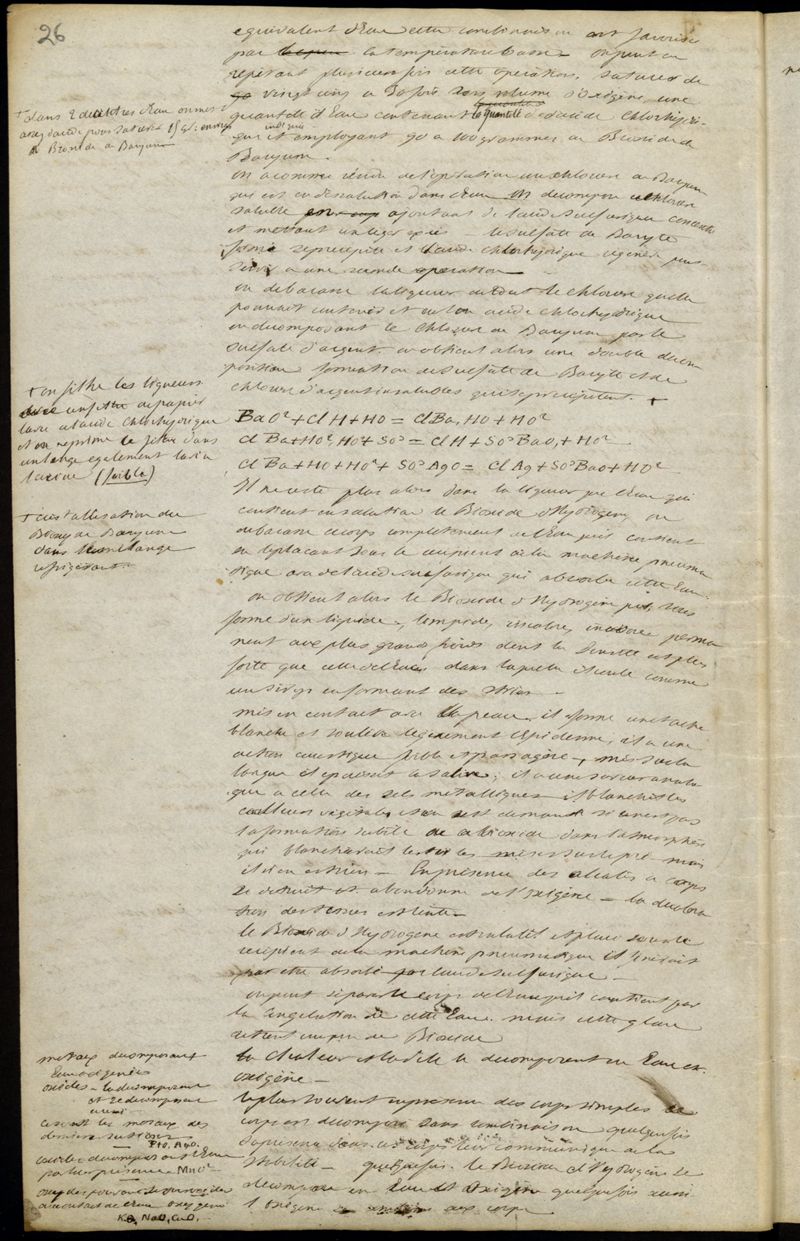 26
equivalent d'Eau cette combinaison est favorisé
par la température basse on peut en
répétant plusieurs fois cette opération, saturer de
vingt cinq a 30 fois son volume d'oxigène une
quantité d'Eau contenant la quantité d'acide chlorhydri-
que indiquée et employant 90 a 100 grammes de Bioxide de
Baryum.
+ dans 2 décilitres d'Eau on met
assez d'acide pour saturer 15 gr. environ
de Bioxide de Baryum
On a comme résidu de l'opération un chlorure de Baryum
qui est en dissolution dans l'eau On décompose ce chlorure
soluble en ajoutant de l'acide sulfurique concentré
et mettant un léger excès — le sulfate de Baryte
formé se précipite et l'acide chlorhydrique régénéré peut
servir a une seconde opération —
on débarasse la liqueur de tout le chlorure qu'elle
pouvait contenir et de son acide chlorhydrique
en décomposant le chlorure de Baryum par le
sulfate d'argent. on obtient alors une double décom-
position formation de sulfate de Baryte et de
chlorure d'argent insolubles qui se précipitent. +
+ on filtre les liqueurs
avec un filtre de papier
lavé a l'acide chlorhydrique
et on reprime le filtre dans
un linge également lavé a
l'acide (faible)
BaO² + ClH + HO = ClBa, HO + HO²
ClBa + HO², HO + SO³ = ClH + SO³BaO, + HO²
ClBa + HO + HO² + SO³AgO = ClAg + SO³BaO + HO²
+ cristallisation du
Bioxyde Baryum
dans le mélange
réfrigérant.
Il ne reste plus alors dans la liqueur que l'Eau qui
contient en solution le Bioxide d'Hydrogène, on
débarasse ce corps complètement de l'Eau qu'il contient
en le plaçant sous le récipient de la machine pneuma
tique avec de l'acide sulfurique qui absorbe cette Eau.
on obtient alors le Bioxide d'Hydrogène pur, sous
forme d'un liquide, limpide, incolore, inodore perma
nent aux plus grands froids dont la densité est plus
forte que celle de l'Eau, dans laquelle il coule comme
un sirop en formant des stries —
mis en contact avec la peau, il forme une tache
blanche et soulève légèrement l'épiderme, il a une
action caustique faible et passagère —, mis sur la
langue il épaissit la salive; il a une saveur analo
gue a celle des sels métalliques il blanchit les
couleurs végétales et on s'est demandé si ce n'est pas
la formation subite de ce bioxide dans l'atmosphère
qui blanchirait les toiles mises sur le pré mais
il n'en est rien — En présence des alcalis ce corps
se détruit et abandonne de l'oxigène — la décolora
tion des tissus est lente —
le Bioxide d'Hydrogène est volatil et placé sous le
récipient de la machine pneumatique il finirait
par être absorbé par l'acide sulfurique —
on peut séparer le corps de l'Eau qu'il contient par
la congélation de cette Eau. mais cette glace
retient un peu de Bioxide
la chaleur et la pile le décomposent en Eau et
oxigène —
le plus souvent en présence des corps simples ce
corps est décomposé sans combinaison quelquefois
la présence dans ces corps leur communique de la
stabilité — quelquefois le Bioxide d'Hydrogène se
décompose en Eau et oxigène quelquefois aussi
l'oxigène se combine aux corps
métaux décomposant
Eau oxigénée
oxides — la décomposent
et se décomposent
aussi —
ce sont les métaux des
dernières sections
PtO, AgO.
oxides décomposant l'Eau
par leur présence MnO²
oxydes pouvant se suroxider
au contact de l'Eau oxygenée
KO, NaO, CuO.